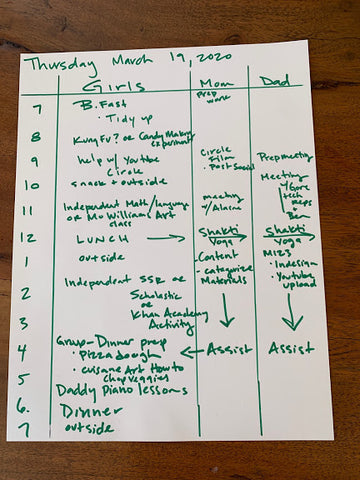 Thursday March 19, 2020
Girls Mom Dad
7 B.Fast prep work
• Tidy up
8 Kung Fu? or Candy Making experiment
9 help w/ Youtube Circle Circle Film • Post Social Prep meeting
10 snack + outside Meeting w/ Gore tech
11 Independent Math/language or Mo Williams Art class meeting w/ Ben
12 LUNCH Shakti Yoga Shakti Yoga
1 outside Content - categorize Materials • Indesign • Youtube upload
2 Independent SSR or Scholastic or
3 Khan Academy Activity
4 Group-Dinner prep Assist Assist
• Pizza dough
5 • cuisane Art How to chop veggies
Daddy Piano lessons
6. Dinner
7 outside